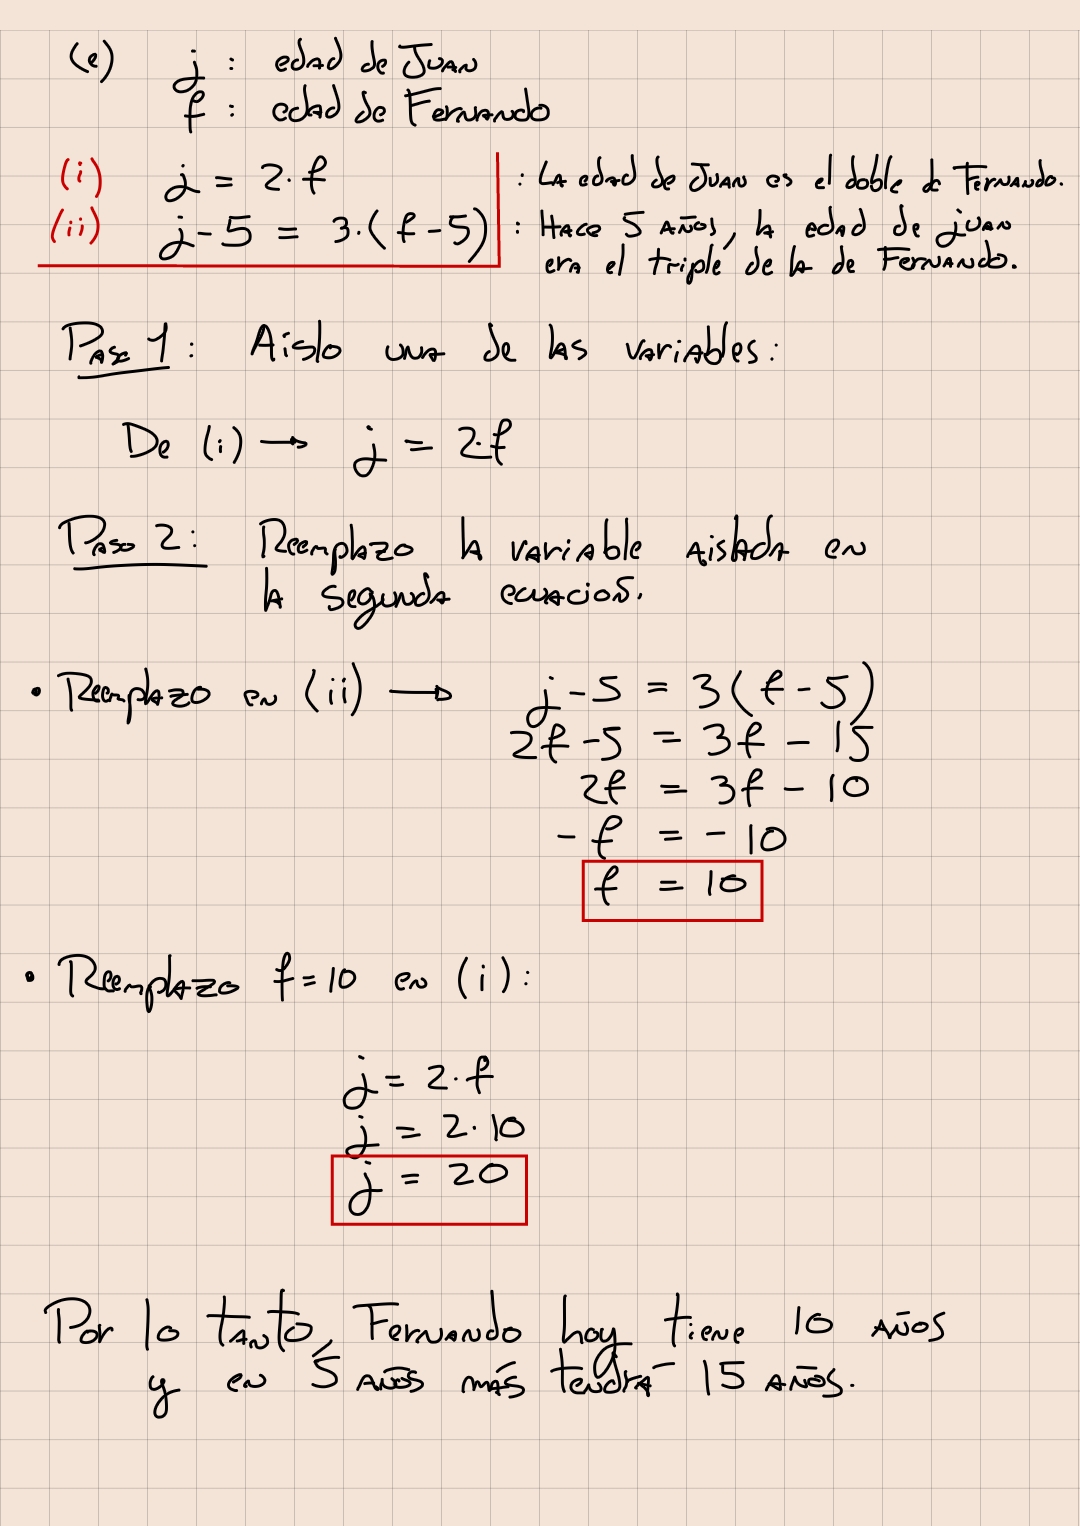 (e) j : edad de Juan
f : edad de Fernando
(i) j = 2·f : La edad de Juan es el doble de Fernando.
(ii) j-5 = 3·(f-5) : Hace 5 años, la edad de juan
era el triple de la de Fernando.
Paso 1: Aislo una de las variables:
De (i) → j = 2·f
Paso 2: Reemplazo la variable aislada en
la segunda ecuación.
• Reemplazo en (ii) → j-5 = 3(f-5)
2f-5 = 3f-15
2f = 3f-10
-f = -10
f = 10
• Reemplazo f=10 en (i):
j = 2·f
j = 2·10
j = 20
Por lo tanto, Fernando hoy tiene 10 años
y en 5 años más tendrá 15 años.